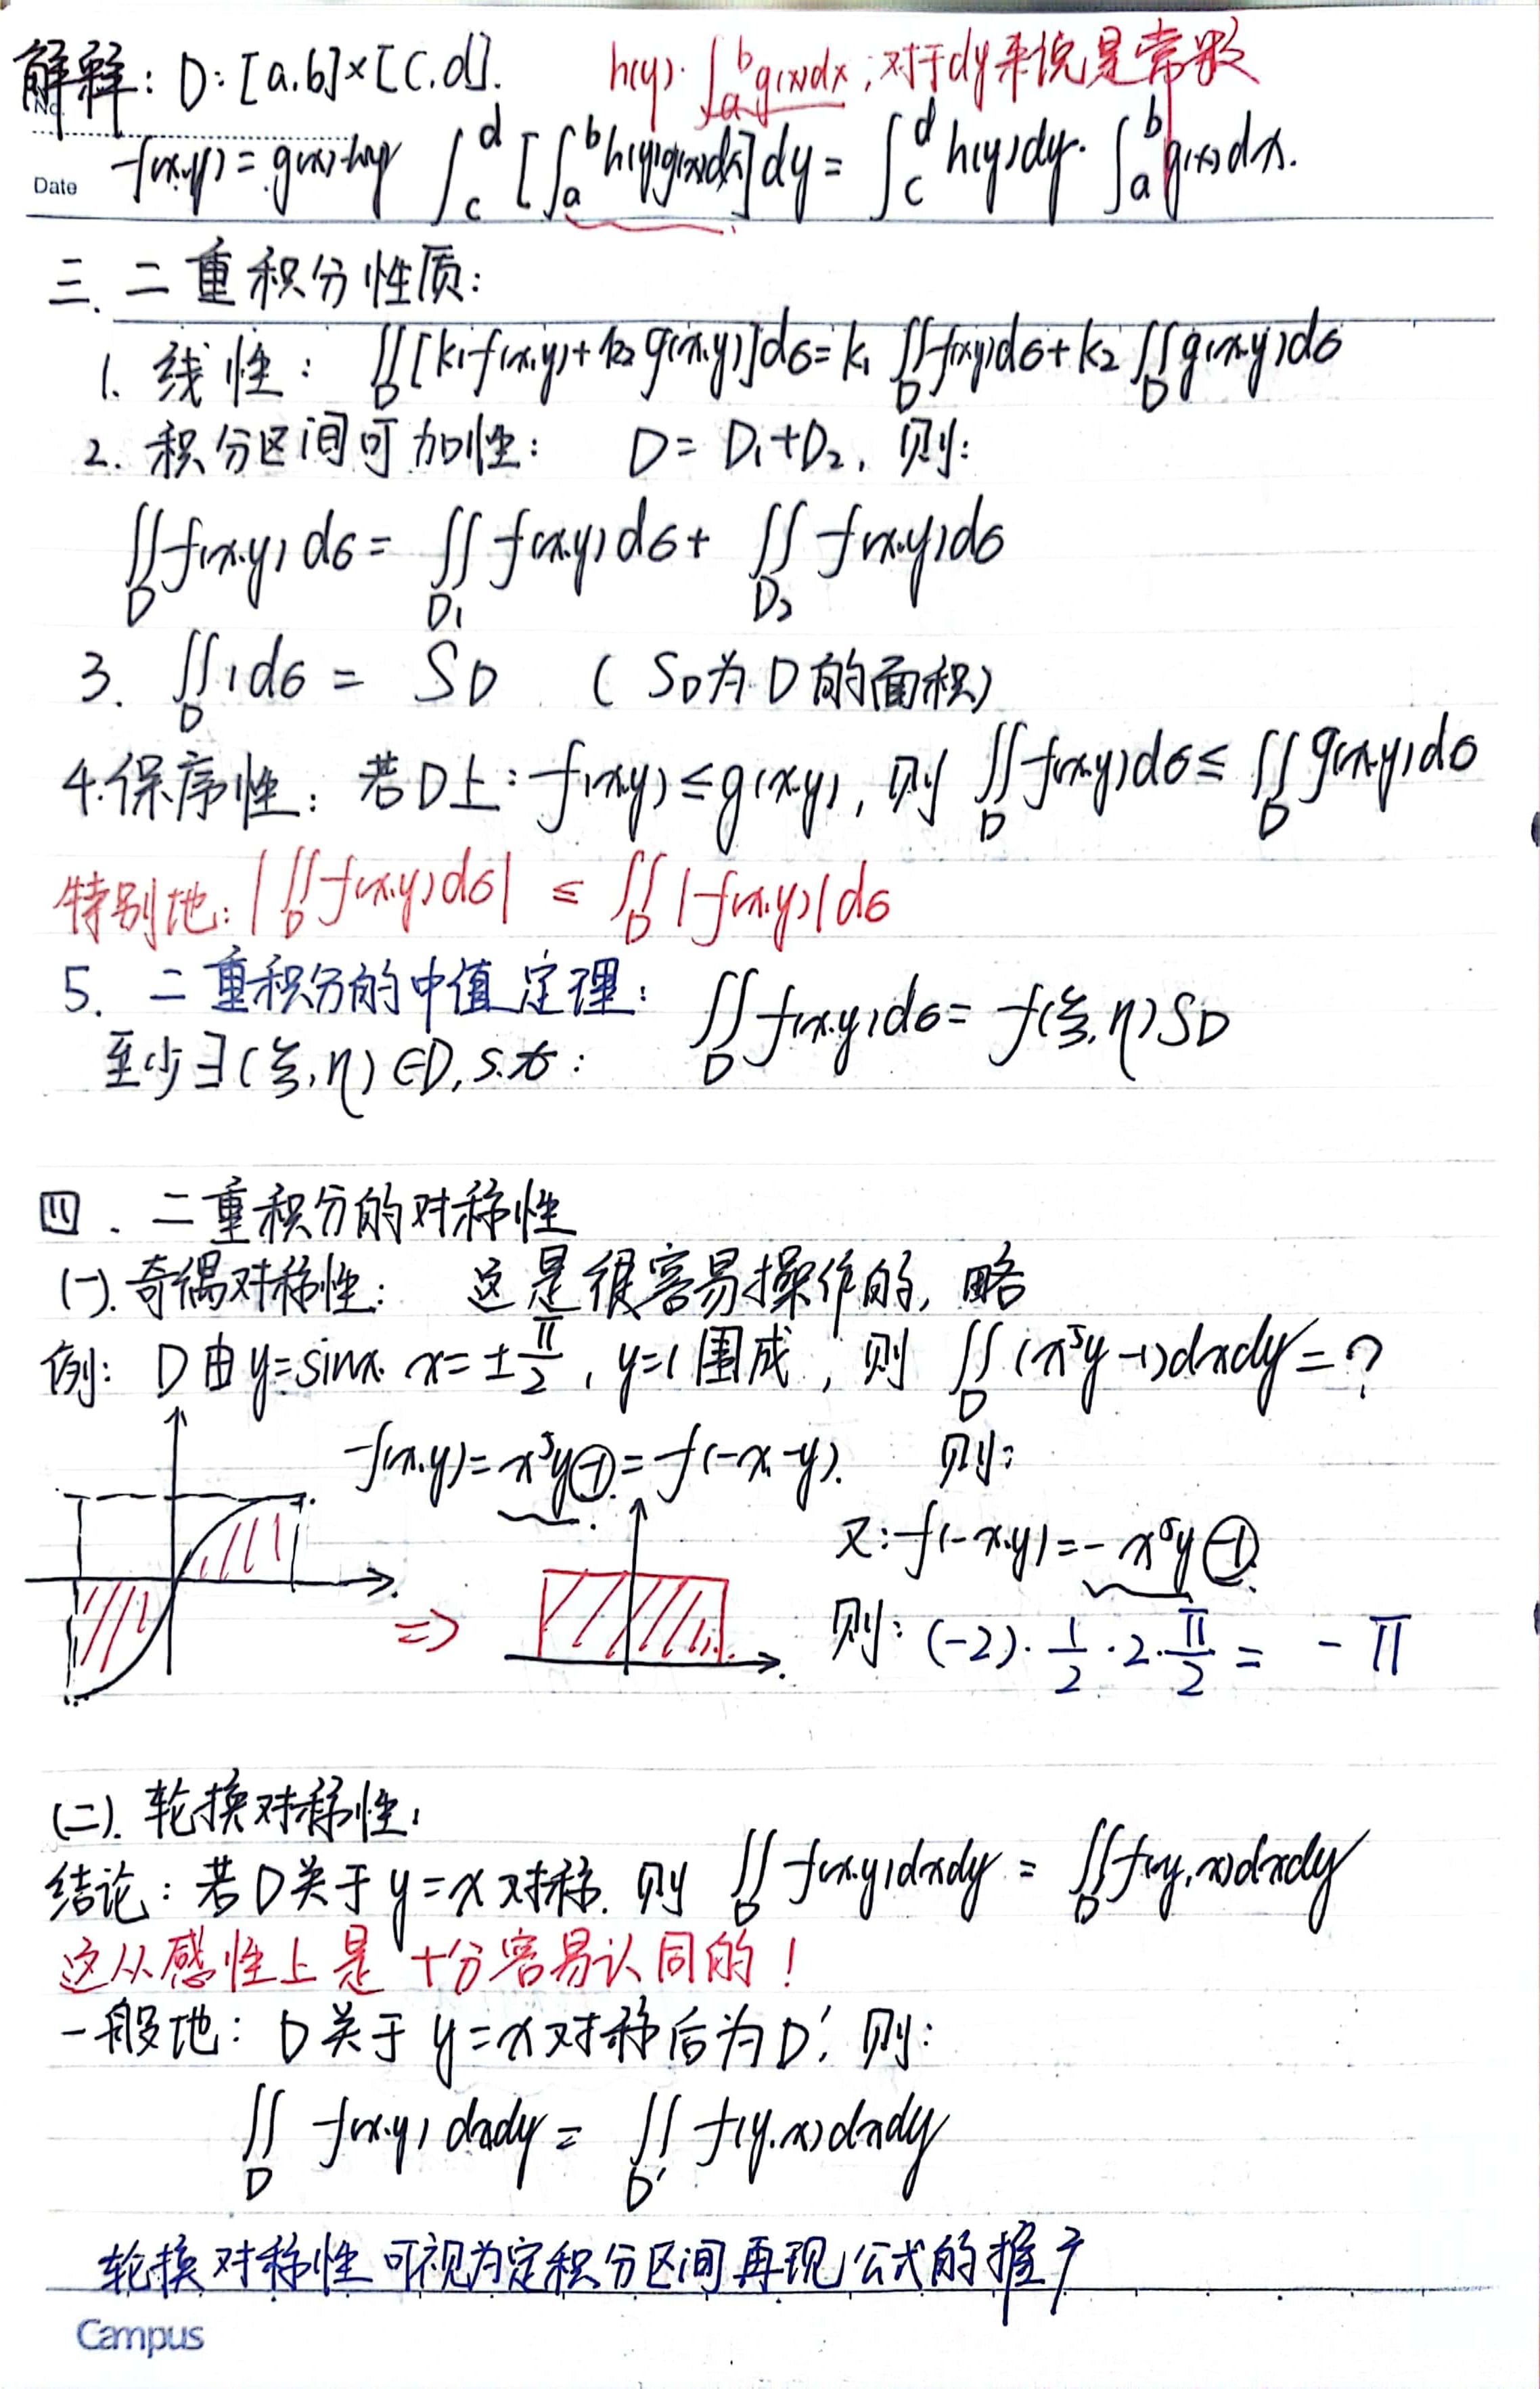 解释: D: [a.b]×[c.d].
h(y)·∫_a^b g(x)dx, 对于dy来说是常数
No.
Date
f(x.y) = g(x)·h(y) ∫_c^d [∫_a^b h(y)g(x)dx]dy = ∫_c^d h(y)dy·∫_a^b g(x)dx.
三. 二重积分性质:
1. 线性: ∬_D [k₁f(x.y)+k₂g(x.y)]dσ=k₁∬_D f(x.y)dσ+k₂∬_D g(x.y)dσ
2. 积分区间可加性: D= D₁+D₂, 则:
∬_D f(x.y)dσ= ∬_D₁ f(x.y)dσ+ ∬_D₂ f(x.y)dσ
3. ∬_D 1dσ = S_D (S_D为D的面积)
4.保序性: 若D上: f(x.y)≤g(x.y), 则 ∬_D f(x.y)dσ≤ ∬_D g(x.y)dσ
特别地: |∬_D f(x.y)dσ| ≤ ∬_D |f(x.y)|dσ
5. 二重积分的中值定理: ∬_D f(x.y)dσ= f(ξ.η)S_D
至少∃(ξ,η)∈D, s.t:
四. 二重积分的对称性
(一). 奇偶对称性: 这是很容易操作的, 略
例: D由y=sinx. x=±π/2, y=1围成, 则 ∬_D (x⁵y-1)dxdy=?
f(x.y)=x⁵y-1=f(-x.-y). 则:
又: f(-x.y)=-x⁵y-1.
⇒
则: (-2)·1/2·2·π/2 = -π
(二). 轮换对称性:
结论: 若D关于y=x对称. 则 ∬_D f(x.y)dxdy = ∬_D f(y.x)dxdy
这从感性上是十分容易认同的!
一般地: D关于y=x对称后为D', 则:
∬_D f(x.y)dxdy = ∬_D' f(y.x)dxdy
轮换对称性可视为定积分区间再现公式的推广
Campus